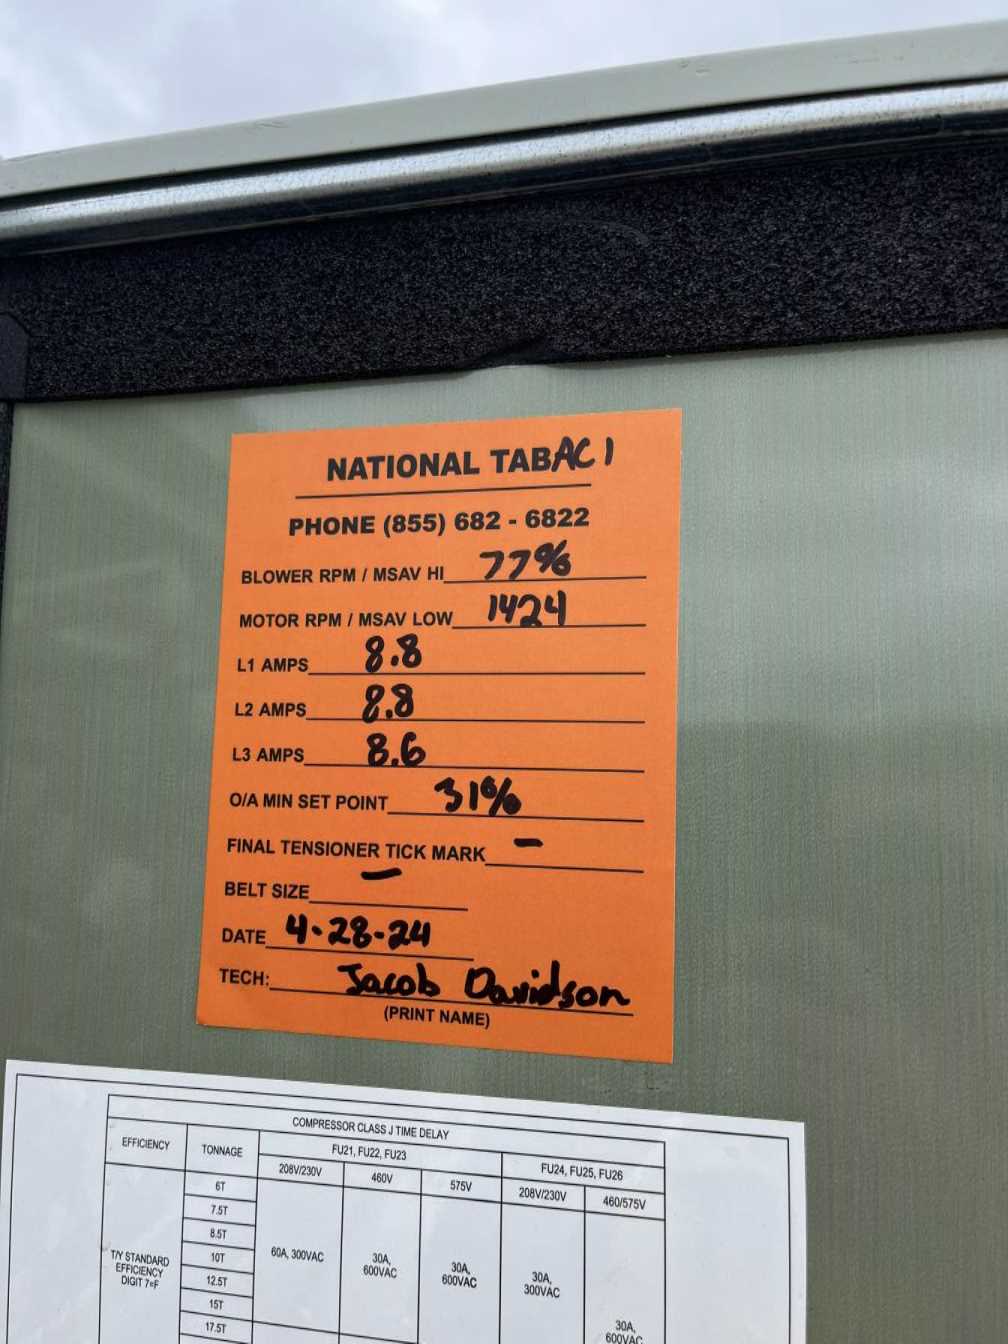 NATIONAL TAB AC 1
PHONE (855) 682 - 6822
BLOWER RPM / MSAV HI 77%
MOTOR RPM / MSAV LOW 1424
L1 AMPS 8.8
L2 AMPS 8.8
L3 AMPS 8.6
O/A MIN SET POINT 31%
FINAL TENSIONER TICK MARK -
BELT SIZE -
DATE 4-28-24
TECH: Jacob Davidson
(PRINT NAME)
COMPRESSOR CLASS J TIME DELAY
EFFICIENCY TONNAGE FU21, FU22, FU23 FU24, FU25, FU26
208V/230V 460V 575V 208V/230V 460/575V
6T
7.5T
8.5T
10T
12.5T
15T
17.5T
T/Y STANDARD
EFFICIENCY
DIGIT 7=F
60A, 300VAC
30A,
600VAC
30A,
600VAC
30A,
300VAC
30A,
600VAC